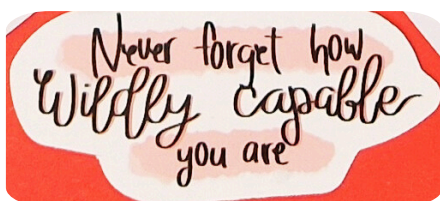 Never forget how
Wildly capable
you are